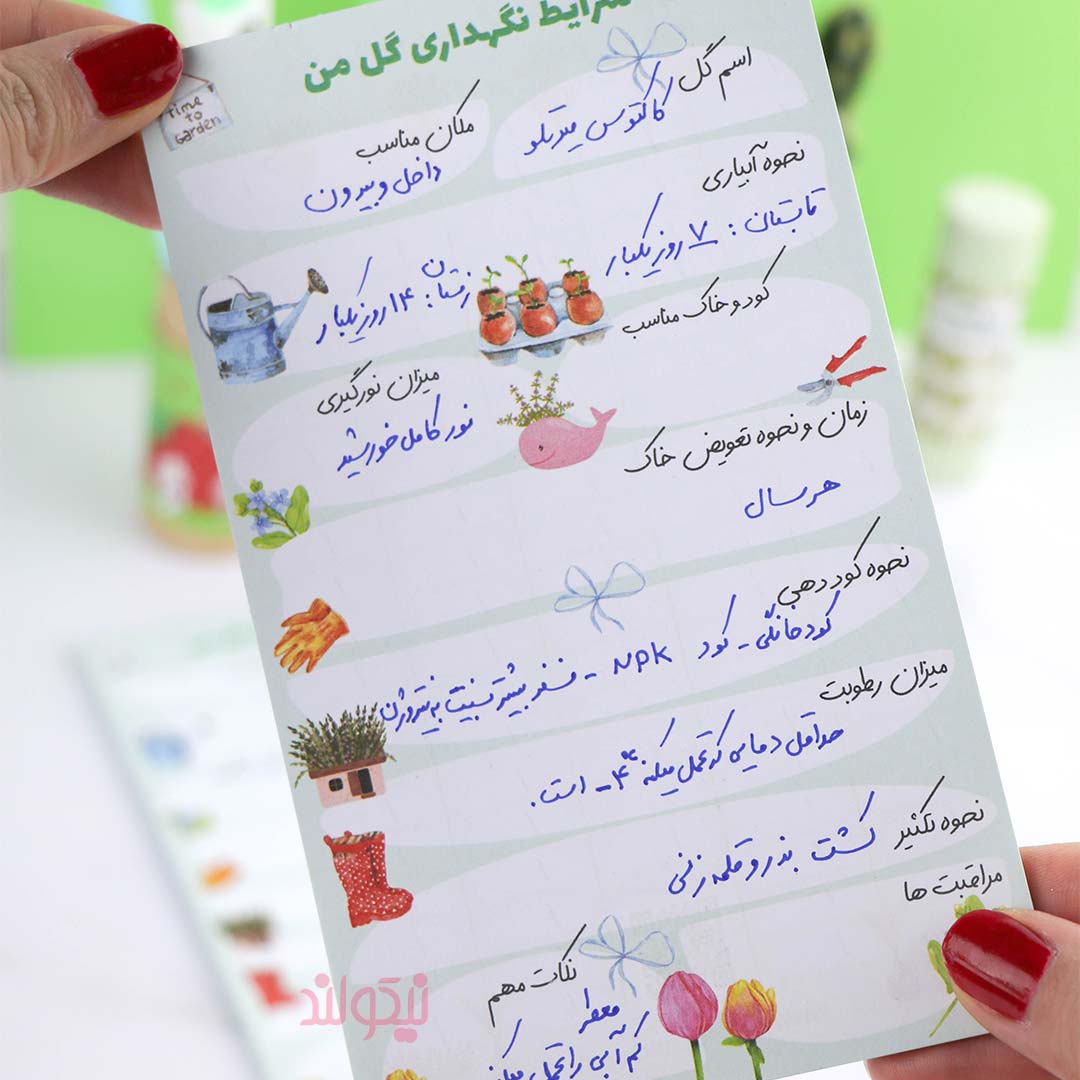 شرایط نگهداری گل من
time
to
Garden
اسم گل
کاکتوس میرتیلو
مکان مناسب
داخل و بیرون
نحوه آبیاری
تابستان : ۷ روز یکبار
زمستان : ۱۴ روز یکبار
کود و خاک مناسب
میزان نورگیری
نور کامل خورشید
زمان و نحوه تعویض خاک
هر سال
نحوه کود دهی
کود خانگی - کود NPK - فسفر بیشتر نسبت به نیتروژن
میزان رطوبت
حداقل دمایی که تحمل میکنه ۴- است.
نحوه تکثیر
کشت بذر و قلمه زنی
مراقبت ها
نکات مهم
معطر
کم آبی را تحمل میکند
نیکولند